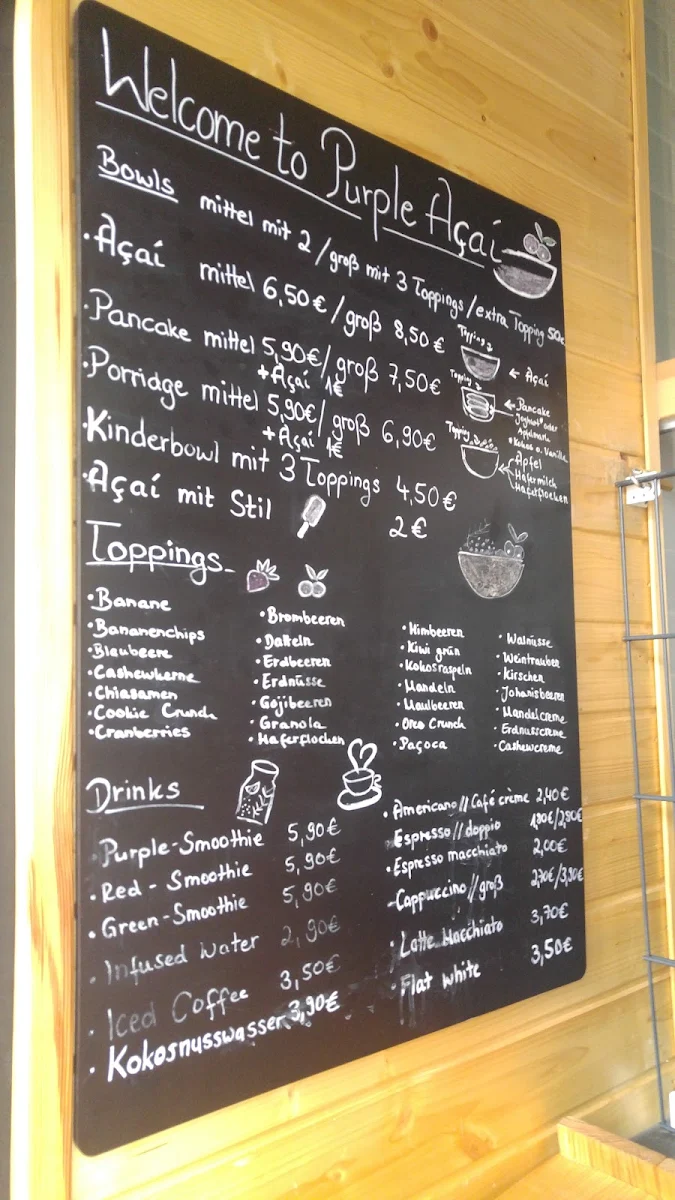 Welcome to Purple Açaí
Bowls mittel mit 2 / groß mit 3 Toppings / extra Topping 50c
· Açaí mittel 6,50€ / groß 8,50€
· Pancake mittel 5,90€ / groß 7,50€
+ Açaí 1€
· Porridge mittel 5,90€ / groß 6,90€
+ Açaí 1€
· Kinderbowl mit 3 Toppings 4,50€
· Açaí mit Stil 2€
Topping
← Açaí
Topping
← Pancake
Joghurt oder
Apfelmark
Kokos o. Vanille
Topping
Apfel
Hafermilch
Haferflocken
Toppings
· Banane
· Bananenchips
· Blaubeere
· Cashewkerne
· Chiasamen
· Cookie Crunch
· Cranberries
· Brombeeren
· Datteln
· Erdbeeren
· Erdnüsse
· Gojibeeren
· Granola
· Haferflocken
· Himbeeren
· Kiwi grün
· Kokosraspeln
· Mandeln
· Maulbeeren
· Oreo Crunch
· Paçoca
· Walnüsse
· Weintrauben
· Kirschen
· Johanisbeeren
· Mandelcreme
· Erdnusscreme
· Cashewcreme
Drinks
· Purple-Smoothie 5,90€
· Red - Smoothie 5,90€
· Green-Smoothie 5,90€
· Infused Water 2,90€
· Iced Coffee 3,50€
· Kokosnusswasser 3,90€
· Americano // Café crème 2,40€
Espresso // doppio 1,90€/2,90€
· Espresso macchiato 2,00€
- Cappuccino // groß 2,70€/3,90€
· Latte Macchiato 3,70€
· Flat white 3,50€